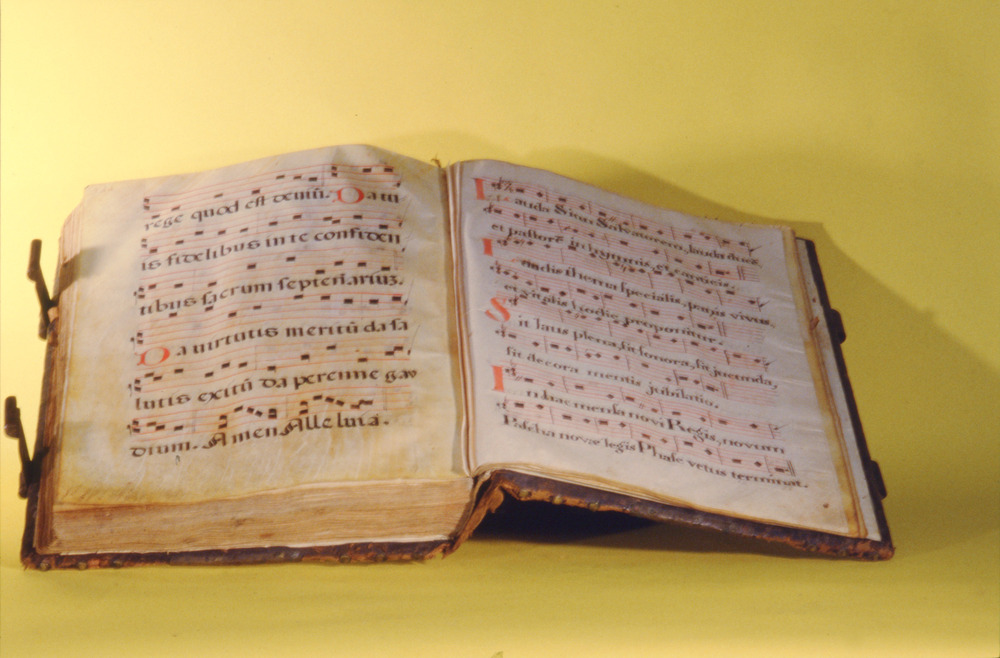 rege quod est demũ. Da tu
is fidelibus in te confiden
tibus sacrum septenariuz.
Da uirtutis meritũ da sa
lutis exitũ da perenne gau
dium. Amen Alleluia.
Lauda Sion Salvatorem, lauda ducẽ
et pastorẽ in hymnis, et canticis.
Laudis thema specialis, panis vivus,
et vitalis hodie proponitur.
Sit laus plena, sit sonora, sit jucunda,
sit decora mentis jubilatio.
In hac mensa novi Regis, novum
Pascha novæ legis Phase vetus terminat.